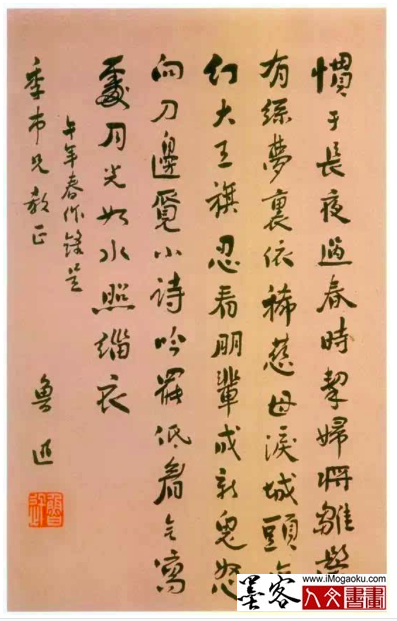 慣于長夜過春時挈婦將雛鬢
有絲夢裏依稀慈母淚城頭變
幻大王旗忍看朋輩成新鬼怒
向刀邊覓小詩吟罷低眉無寫
處月光如水照緇衣
午年春作錄呈
季市兄教正
魯迅
魯迅
墨客
www.iMogaoku.com
人文書畫